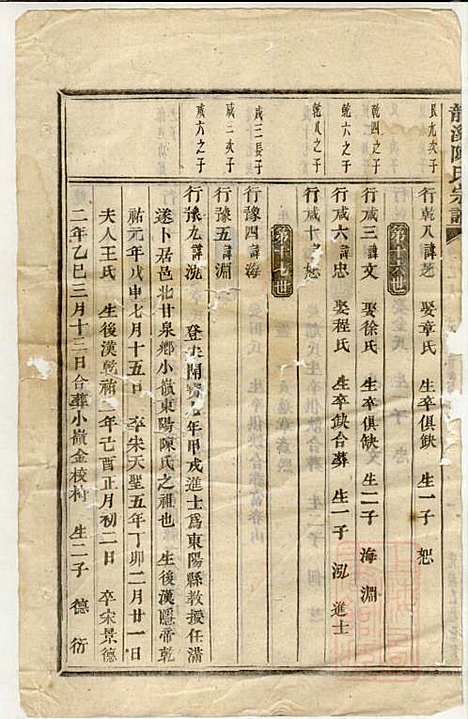 龍溪陳氏宗譜
艮九次子
行乾八諱芝 娶章氏 生卒俱缺 生一子 恕
第十六世
乾四之子
行咸三諱文 娶徐氏 生卒俱缺 生二子 海 淵
乾六之子
行咸六諱忠 娶程氏 生卒缺合葬 生一子 泓 進士
乾八之子
行咸十諱恕
第十七世
咸三長子
行豫四諱海
咸三次子
行豫五諱淵
咸六之子
行豫九諱泓 登宋開寶 年甲戌進士爲東陽縣教授任滿
遂卜居邑北甘泉鄉小嶺東陽陳氏之祖也 生後漢隱帝乾
祐元年戊申七月十五日 卒宋天聖五年丁卯二月廿一日
夫人王氏 生後漢乾祐二年己酉正月初二日 卒宋景德
二年乙巳三月十三日合葬小嶺金校村 生二子 德 衍